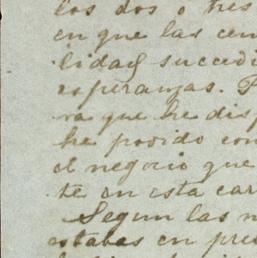 los dos o tres
en que las cem
lidad succedi
esperanzas. P
ra que he disp
he podido con
el negocio que
te en esta car
Segun las n
estabas en pre